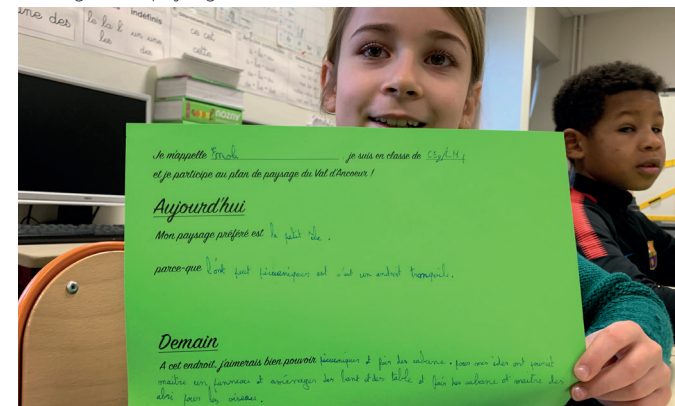 une des
la la l'
les
Indéfinis
un une
des
ce cet
cette
Je m'appelle Enola je suis en classe de
et je participe au plan de paysage du Val d'Ancoeur !
Aujourd'hui
Mon paysage préféré est la petit ile.
parce-que l'ont peut piqueniquer est c'est un endroit tranquile.
Demain
A cet endroit, j'aimerais bien pouvoir piqueniquer et fair des cabane. pour nous ider ont pourait
maitre un panneau et aménager des banc et des table et fair des cabane et maitre des
abri pour les oiseau.